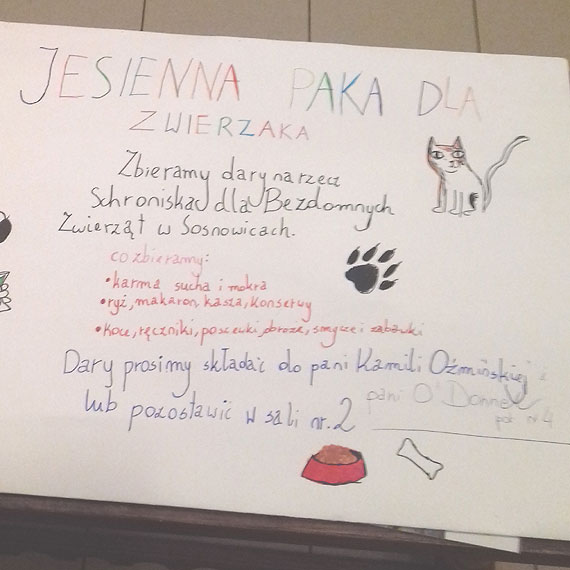 JESIENNA PAKA DLA
ZWIERZAKA
Zbieramy dary na rzecz
Schroniska dla Bezdomnych
Zwierząt w Sosnowicach.
co zbieramy:
• karma sucha i mokra
• ryż, makaron, kasza, konserwy
• koce, ręczniki, poszewki, obroże, smycze i zabawki
Dary prosimy składać do pani Kamili Oźmińskiej i
pani O'Donnel
lub pozostawić w sali nr. 2
pok nr 4